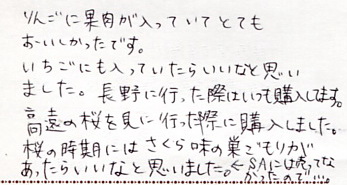 りんごに果肉が入っていてとても
おいしかったです。
いちごにも入っていたらいいなと思い
ました。長野に行った際はいつも購入してます。
高遠の桜を見に行った際に購入しました。
桜の時期にはさくら味の巣ごもりが
あったらいいなと思いました。←SAには売ってな
かったので…。